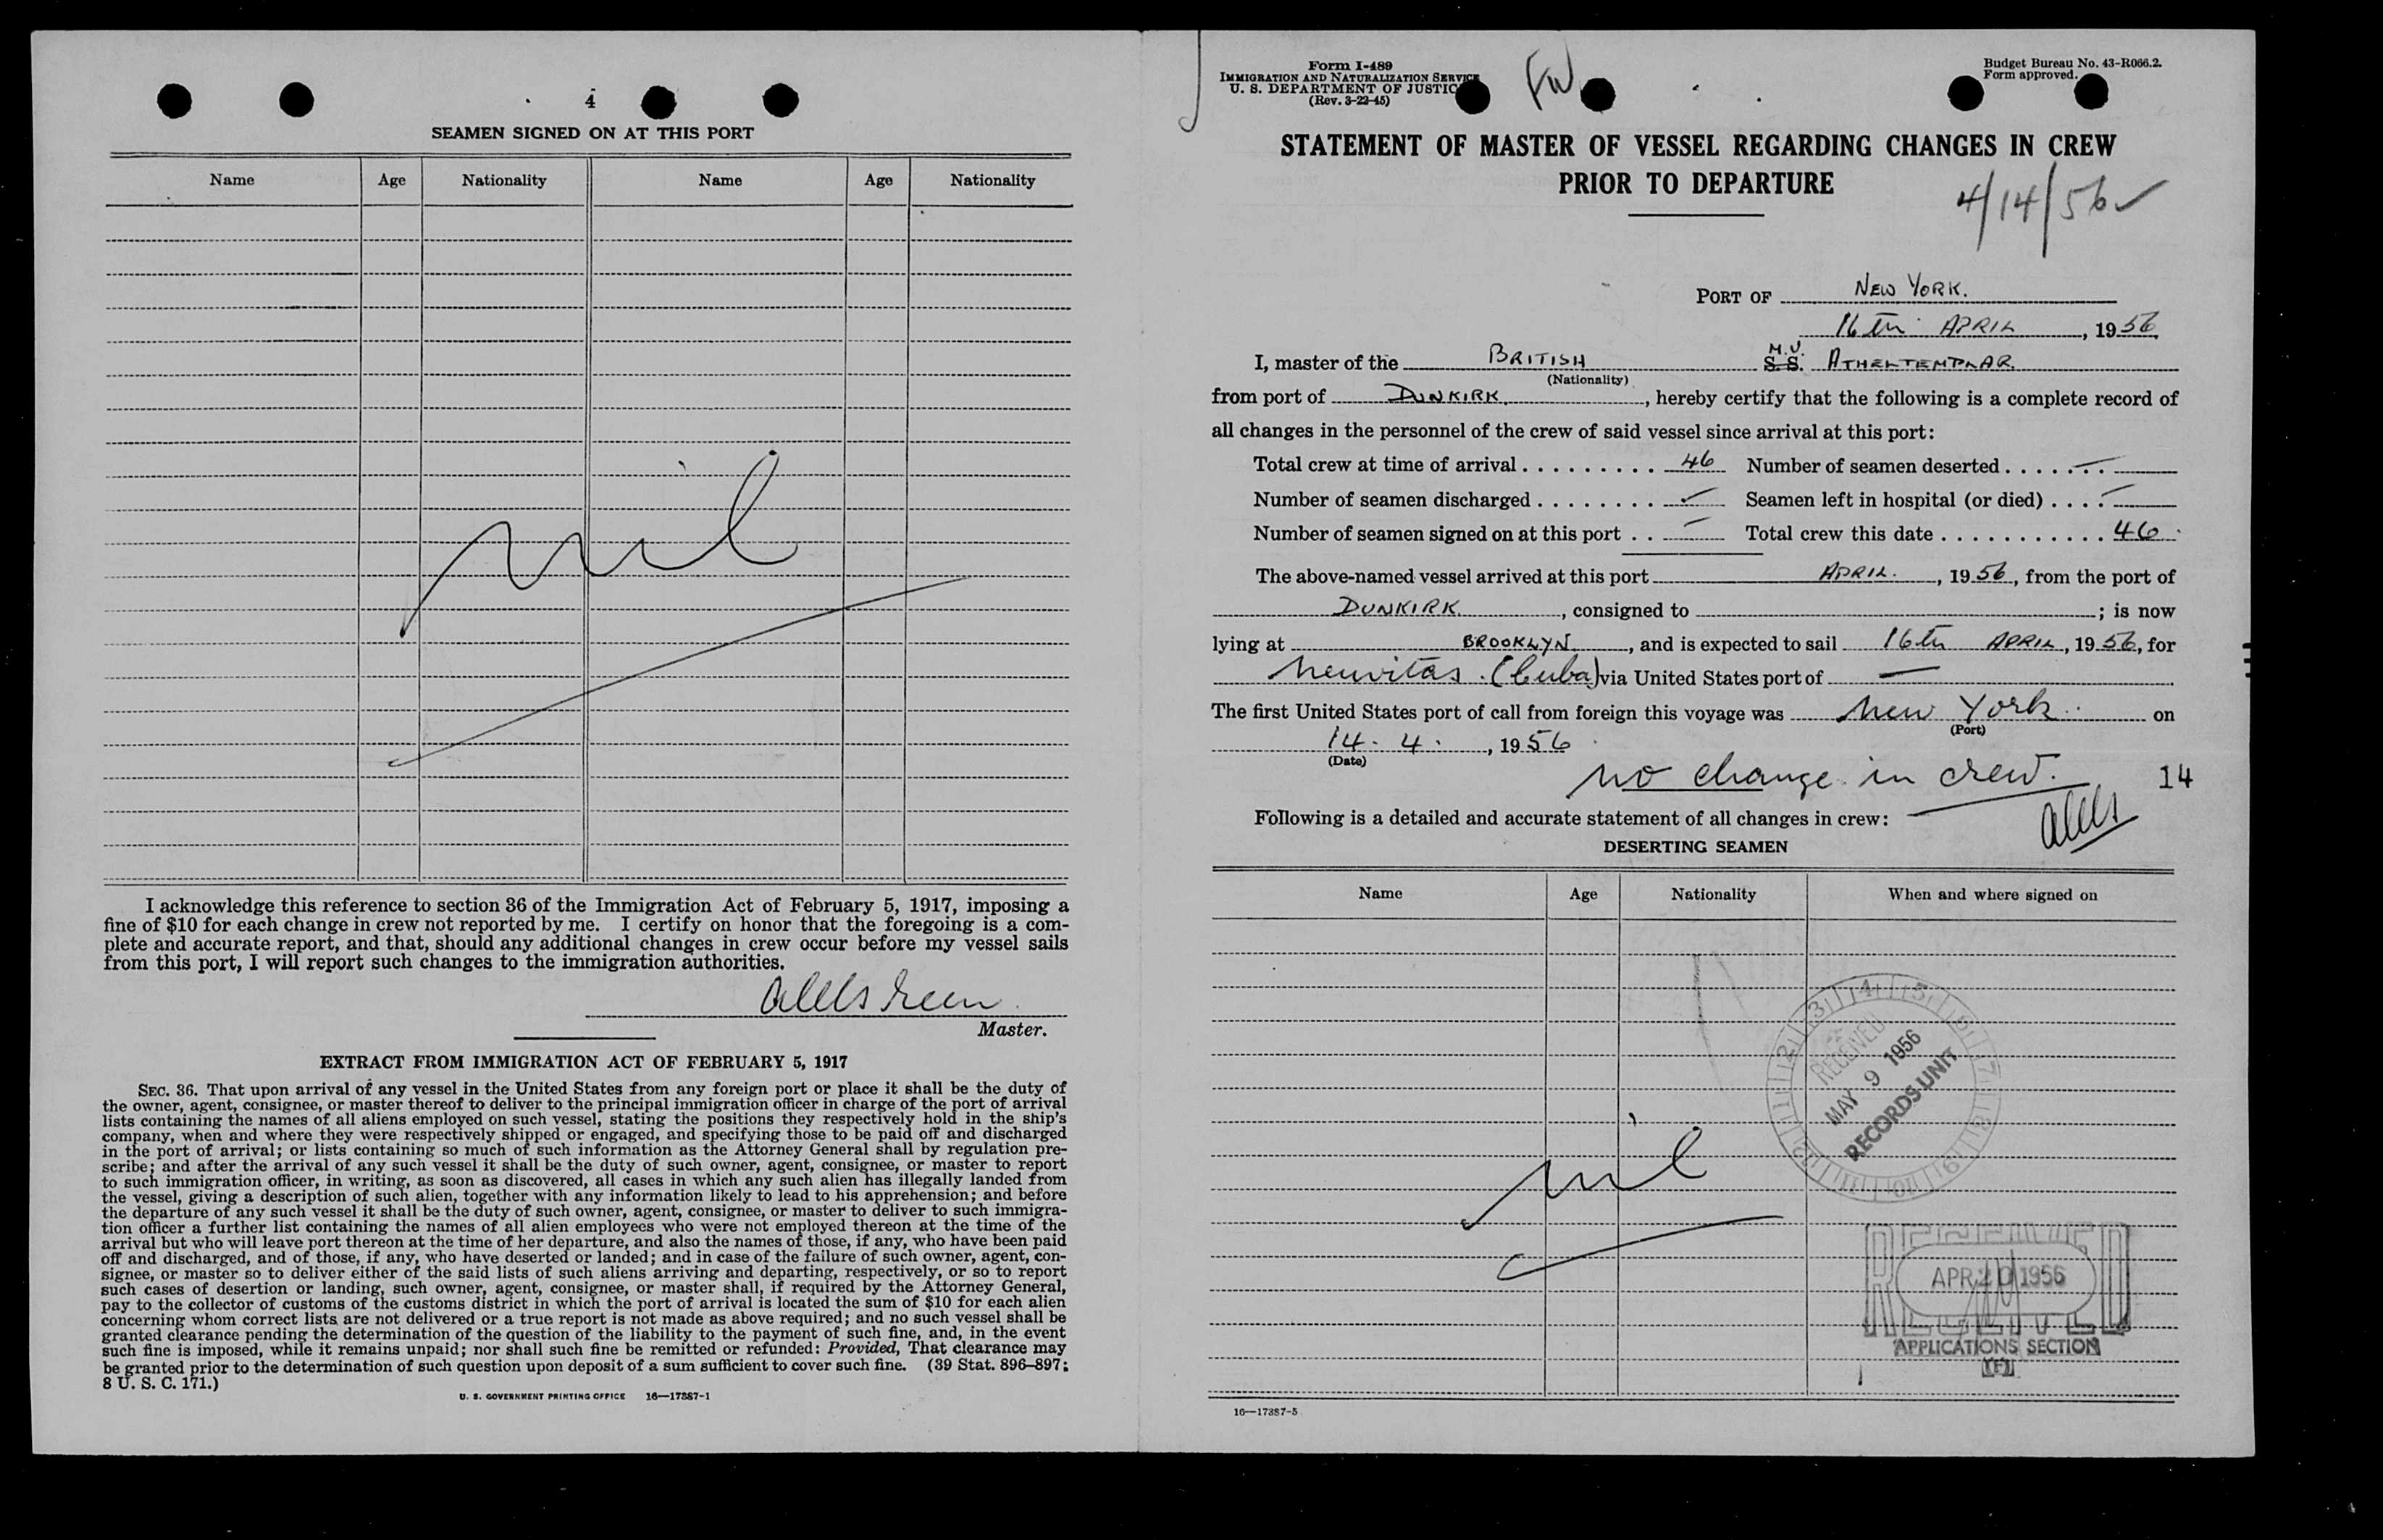 4
SEAMEN SIGNED ON AT THIS PORT
Name Age Nationality Name Age Nationality
nil
I acknowledge this reference to section 36 of the Immigration Act of February 5, 1917, imposing a
fine of $10 for each change in crew not reported by me. I certify on honor that the foregoing is a com-
plete and accurate report, and that, should any additional changes in crew occur before my vessel sails
from this port, I will report such changes to the immigration authorities.
Master.
EXTRACT FROM IMMIGRATION ACT OF FEBRUARY 5, 1917
SEC. 36. That upon arrival of any vessel in the United States from any foreign port or place it shall be the duty of
the owner, agent, consignee, or master thereof to deliver to the principal immigration officer in charge of the port of arrival
lists containing the names of all aliens employed on such vessel, stating the positions they respectively hold in the ship's
company, when and where they were respectively shipped or engaged, and specifying those to be paid off and discharged
in the port of arrival; or lists containing so much of such information as the Attorney General shall by regulation pre-
scribe; and after the arrival of any such vessel it shall be the duty of such owner, agent, consignee, or master to report
to such immigration officer, in writing, as soon as discovered, all cases in which any such alien has illegally landed from
the vessel, giving a description of such alien, together with any information likely to lead to his apprehension; and before
the departure of any such vessel it shall be the duty of such owner, agent, consignee, or master to deliver to such immigra-
tion officer a further list containing the names of all alien employees who were not employed thereon at the time of the
arrival but who will leave port thereon at the time of her departure, and also the names of those, if any, who have been paid
off and discharged, and of those, if any, who have deserted or landed; and in case of the failure of such owner, agent, con-
signee, or master so to deliver either of the said lists of such aliens arriving and departing, respectively, or so to report
such cases of desertion or landing, such owner, agent, consignee, or master shall, if required by the Attorney General,
pay to the collector of customs of the customs district in which the port of arrival is located the sum of $10 for each alien
concerning whom correct lists are not delivered or a true report is not made as above required; and no such vessel shall be
granted clearance pending the determination of the question of the liability to the payment of such fine, and, in the event
such fine is imposed, while it remains unpaid; nor shall such fine be remitted or refunded: Provided, That clearance may
be granted prior to the determination of such question upon deposit of a sum sufficient to cover such fine. (39 Stat. 896–897;
8 U. S. C. 171.)
U. S. GOVERNMENT PRINTING OFFICE 16—17387-1
Form I-489
IMMIGRATION AND NATURALIZATION SERVICE
U. S. DEPARTMENT OF JUSTIC
(Rev. 3-22-45)
FW
Budget Bureau No. 43-R066.2.
Form approved.
STATEMENT OF MASTER OF VESSEL REGARDING CHANGES IN CREW
PRIOR TO DEPARTURE
4/14/56
PORT OF NEW YORK.
16th APRIL, 1956
I, master of the BRITISH M.V. S.S. ATHELTEMPLAR
(Nationality)
from port of DUNKIRK, hereby certify that the following is a complete record of
all changes in the personnel of the crew of said vessel since arrival at this port:
Total crew at time of arrival 46 Number of seamen deserted —
Number of seamen discharged Seamen left in hospital (or died) —
Number of seamen signed on at this port — Total crew this date 46
The above-named vessel arrived at this port APRIL, 1956, from the port of
DUNKIRK, consigned to ; is now
lying at BROOKLYN, and is expected to sail 16th APRIL, 1956, for
Neuvitas (Cuba) via United States port of —
The first United States port of call from foreign this voyage was New York on
(Port)
14. 4., 1956
(Date)
no change in crew. 14
Following is a detailed and accurate statement of all changes in crew:
DESERTING SEAMEN
Name Age Nationality When and where signed on
RECEIVED
MAY 9 1956
RECORDS UNIT
nil
RECEIVED
APR 20 1956
APPLICATIONS SECTION
16—17387-5